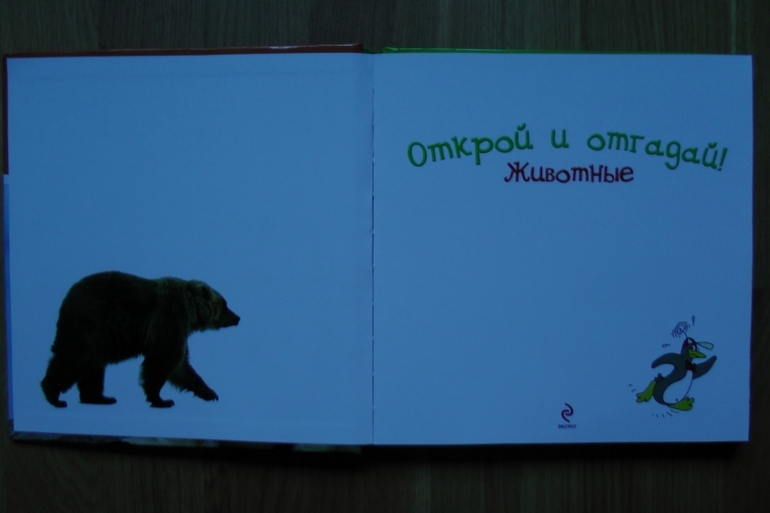 Открой и отгадай!
Животные